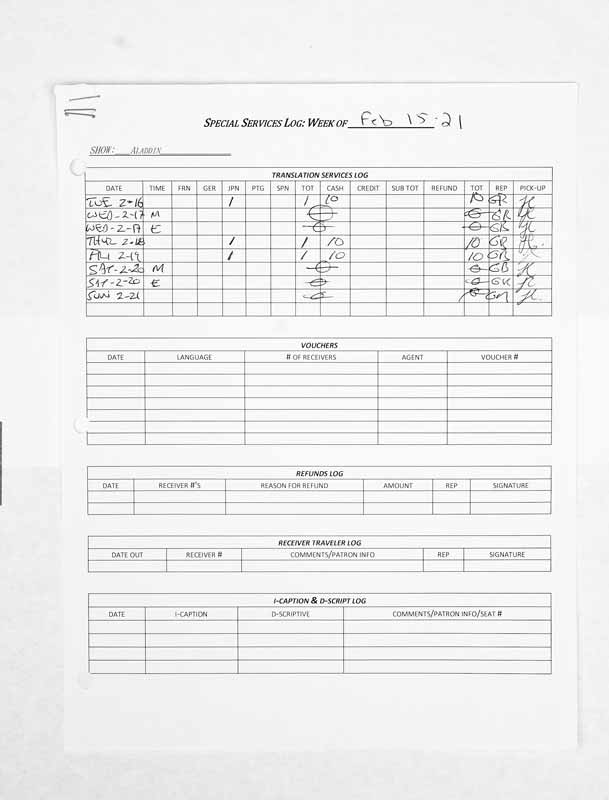 SPECIAL SERVICES LOG: WEEK OF Feb 15-21
SHOW: ALADDIN
TRANSLATION SERVICES LOG
DATE TIME FRN GER JPN PTG SPN TOT CASH CREDIT SUB TOT REFUND TOT REP PICK-UP
TUE 2-16 1 1 10 10 GR
WED-2-17 M GR
WED-2-17 E GR
THUR 2-18 1 1 10 10 GR
FRI 2-19 1 1 10 10 GR
SAT-2-20 M GR
SAT-2-20 E GR
SUN 2-21 GR
VOUCHERS
DATE LANGUAGE # OF RECEIVERS AGENT VOUCHER #
REFUNDS LOG
DATE RECEIVER #'S REASON FOR REFUND AMOUNT REP SIGNATURE
RECEIVER TRAVELER LOG
DATE OUT RECEIVER # COMMENTS/PATRON INFO REP SIGNATURE
I-CAPTION & D-SCRIPT LOG
DATE I-CAPTION D-SCRIPTIVE COMMENTS/PATRON INFO/SEAT #